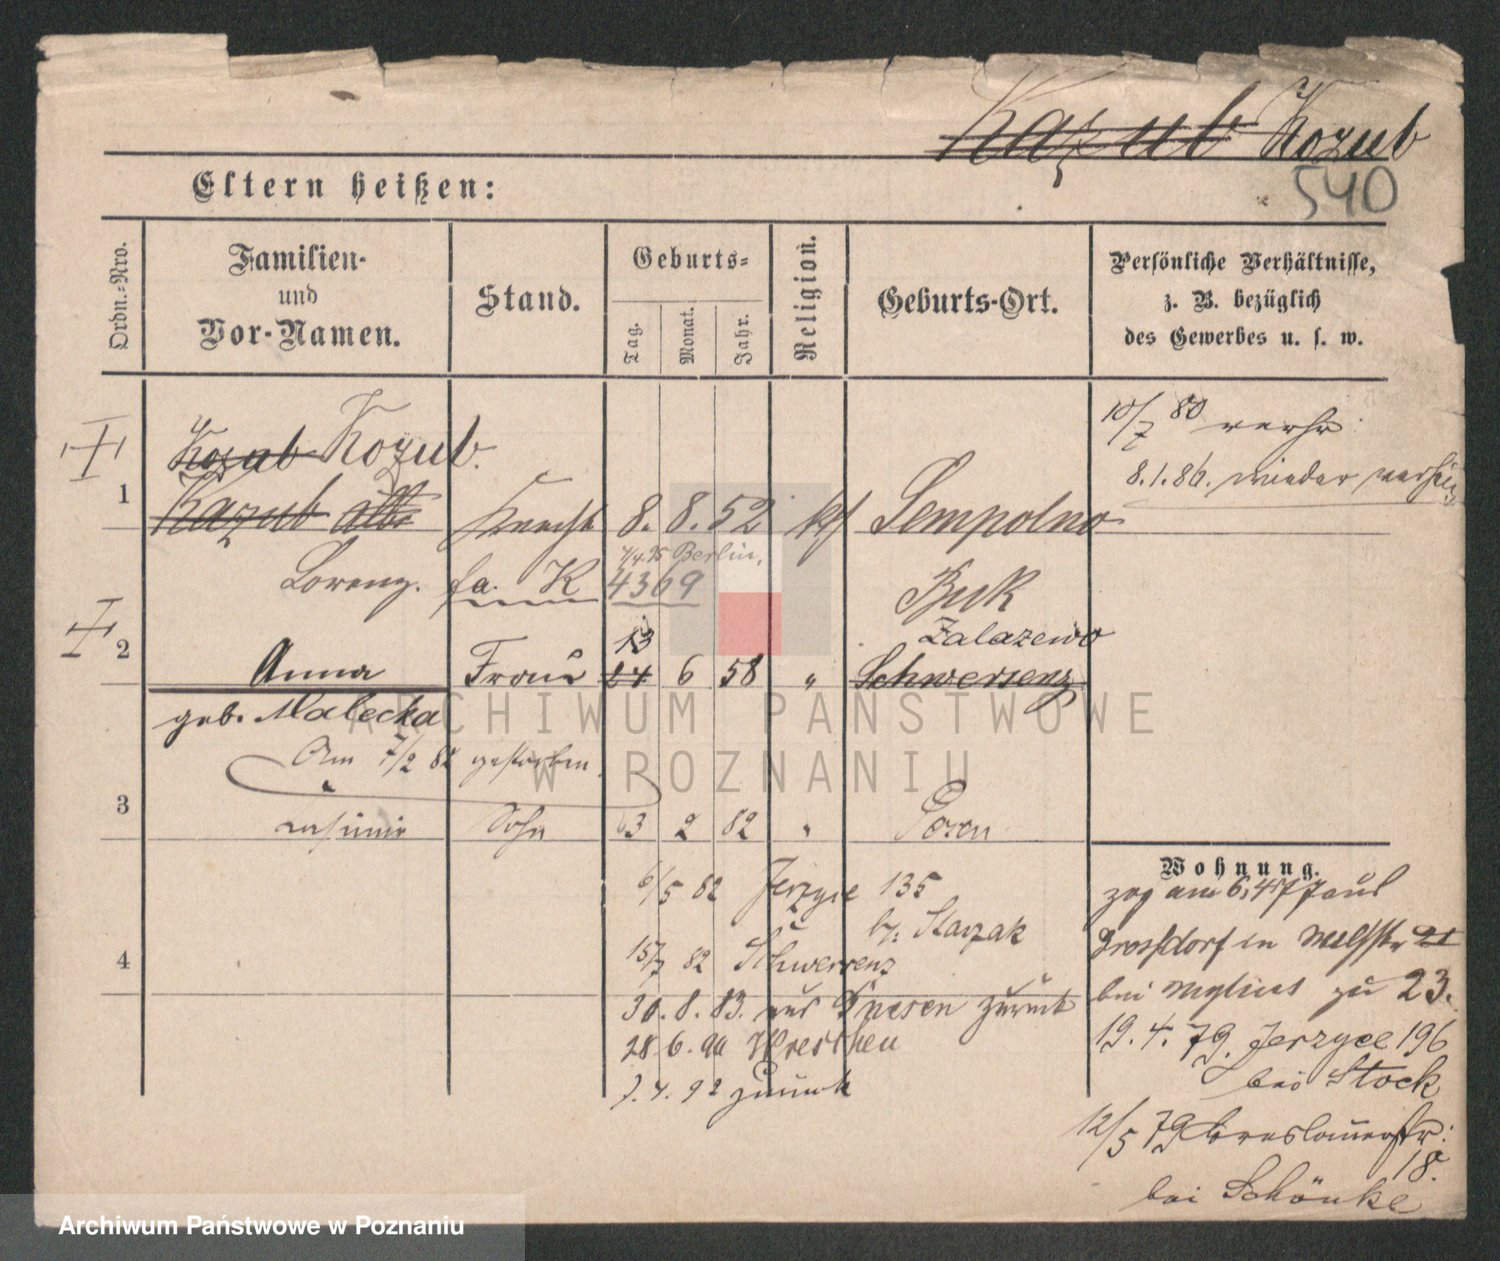 Kazub Kozub
540
Eltern heißen:
Ordn.-Nro.
Familien-
und
Vor-Namen.
Stand.
Geburts-
Tag.
Monat.
Jahr.
Religion.
Geburts-Ort.
Persönliche Verhältnisse,
z. B. bezüglich
des Gewerbes u. s. w.
10/7 80 verhr
Kozub Kozub.
8.1.86. wieder
1 Kazub Knecht 8. 8. 52 kf Sempolno
7/4.95 Berlin.
Lorenz. fa. K 4369 Buk
13 Zalazewo
2 Anna Frau 14 6 58 " Schwersenz
geb. Malecka
Am 7/2 82 gestorben
3 Casimir Sohn 3 2 82 " Posen
Wohnung.
6/5 82 Jerzyce 135
zog am 6.4 77 aus
by: Starzak
Grossdorf in 21
4 15/7 82 Schwersenz
bei Mylius zu 23.
30. 8. 83. aus Gnesen zurück
19. 4. 79. Jerzyce 196
28. 6. 90 Wreschen
bei Stock
7. 4. 92 zurück
12/5 79 Breslauerstr:
18.
bei Schönke
ARCHIWUM PAŃSTWOWE
W POZNANIU
Archiwum Państwowe w Poznaniu